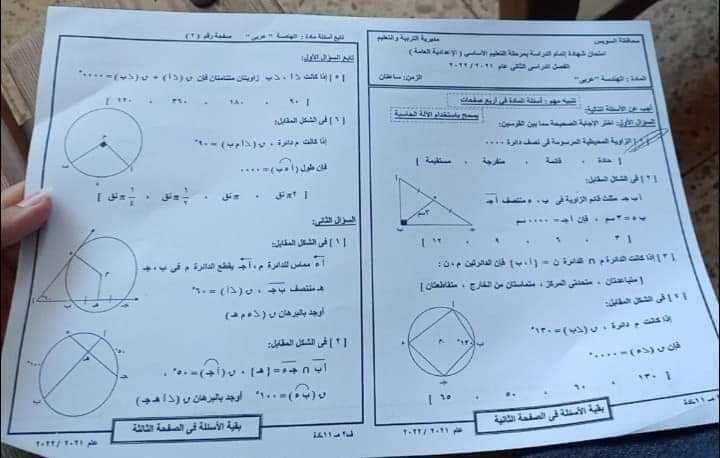 محافظة السويس
مديرية التربية والتعليم
امتحان شهادة إتمام الدراسة بمرحلة التعليم الأساسي ( الإعدادية العامة )
الفصل الدراسي الثاني عام ٢٠٢١ / ٢٠٢٢
المادة : الهندسة "عربى"
الزمن: ساعتان
تنبيه مهم : أسئلة المادة في أربع صفحات
أجب عن الأسئلة التالية:
يسمح باستخدام الآلة الحاسبة
السؤال الأول: اختر الإجابة الصحيحة مما بين القوسين:
الزاوية المحيطية المرسومة في نصف دائرة ....
[ حادة ، قائمة ، منفرجة ، مستقيمة ]
[ ٢ ] في الشكل المقابل:
أ ب جـ مثلث قائم الزاوية في ب ، ء منتصف أجـ
ب ء = ٣ سم ، فإن أجـ = .... سم
[ ٣ ، ٦ ، ٩ ، ١٢ ]
٣سم
[ ٣ ] إذا كانت الدائرة م ∩ الدائرة ن = { أ ، ب } فإن الدائرتين م ، ن :
[ متباعدتان ، متحدتي المركز ، متماستان من الخارج ، متقاطعتان ]
[ ٤ ] في الشكل المقابل:
إذا كانت م دائرة ، ق (∠ب) = ١٣٠°
فإن ق (∠ء) = ....°
[ ١٣٠ ، ٦٠ ، ٥٠ ، ٦٥ ]
١٣٠°
بقية الأسئلة في الصفحة الثانية
عام ٢٠٢١ / ٢٠٢٢
تابع أسئلة مادة : الهندسة " عربى "
صفحة رقم ( ٢ )
تابع السؤال الأول:
[ ٥ ] إذا كانت ∠أ ، ∠ب زاويتان متتامتان فإن ق (∠أ) + ق (∠ب) = ....°
[ ٩٠ ، ١٨٠ ، ٣٦٠ ، ١٢٠ ]
[ ٦ ] في الشكل المقابل:
إذا كانت م دائرة ، ق (∠أ م ب) = ٩٠°
فإن طول (أ ب) = ....
[ ٢ π نق ، π نق ، ١/٢ π نق ، ١/٤ π نق ]
السؤال الثاني:
[ ١ ] في الشكل المقابل:
أء مماس للدائرة م ، أجـ يقطع الدائرة م في ب ، جـ
هـ منتصف ب جـ ، ق (∠أ) = ٦٠°
أوجد بالبرهان ق (∠ء م هـ)
[ ٢ ] في الشكل المقابل:
أب ∩ جـ ء = { هـ } ، ق (أجـ) = ٥٠° ،
ق (ب ء) = ١٠٠° أوجد بالبرهان ق (∠أ هـ جـ)
٥٠°
١٠٠°
بقية الأسئلة في الصفحة الثالثة
عام ٢٠٢١ / ٢٠٢٢